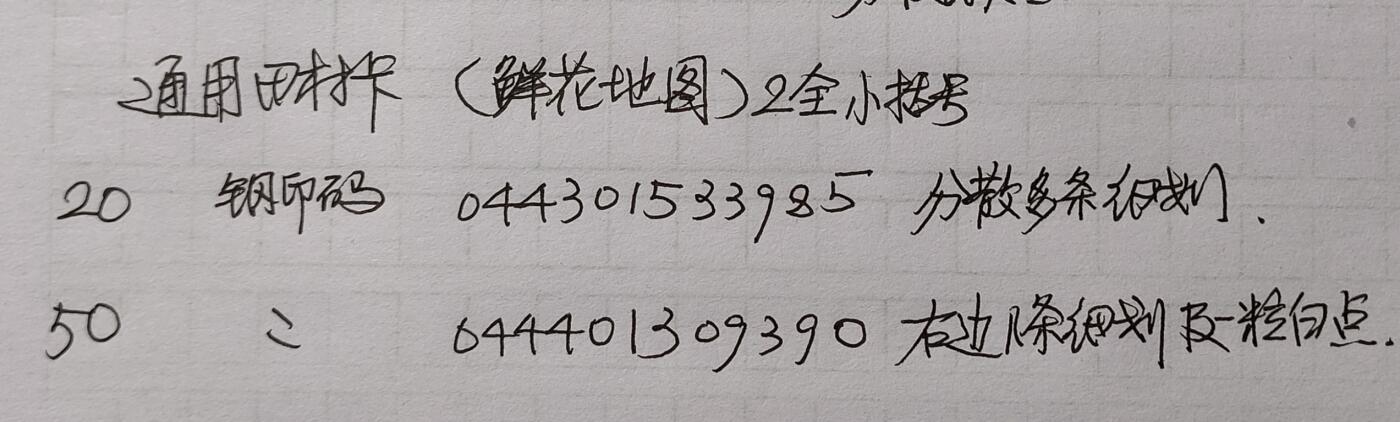 通用田村卡（鲜花地图）2全小括号
20 钢印码 044301533985 分散多条细划.
50 〃 044401309390 右边1条细划及一粒白点.